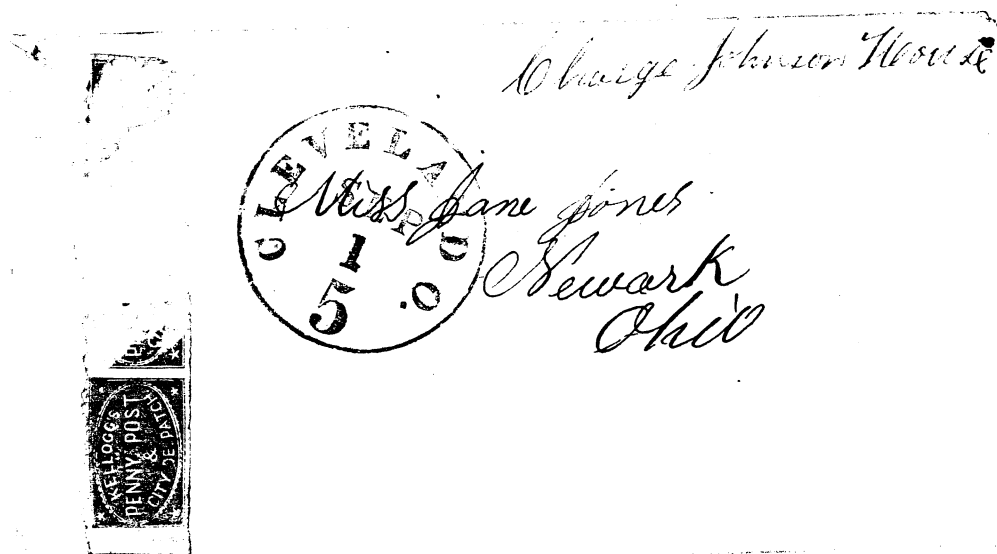 Charge Johnson House
CLEVELAND O.
SEP
1
5
Miss Jane Jones
Newark
Ohio
KELLOGG'S
PENNY POST
&
CITY DE PATCH